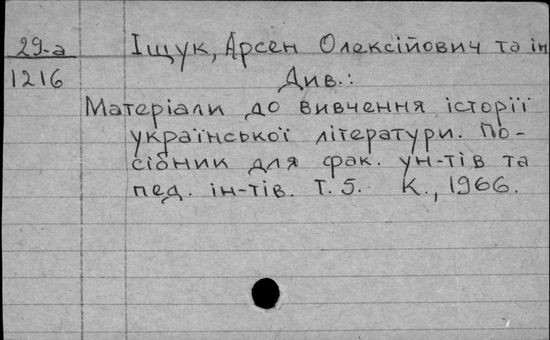 29-а Іщук, Арсен Олексійович та ін
1216 Див.:
Матеріали до вивчення історії
української літератури. По-
сібник для фак. ун-тів та
пед. ін-тів. Т. 5. К., 1966.